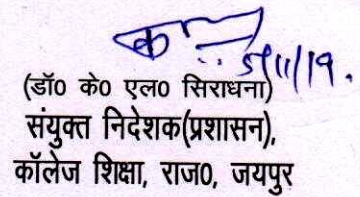 5/11/19.
(डॉ0 के0 एल0 सिराधना)
संयुक्त निदेशक(प्रशासन),
कॉलेज शिक्षा, राज0, जयपुर